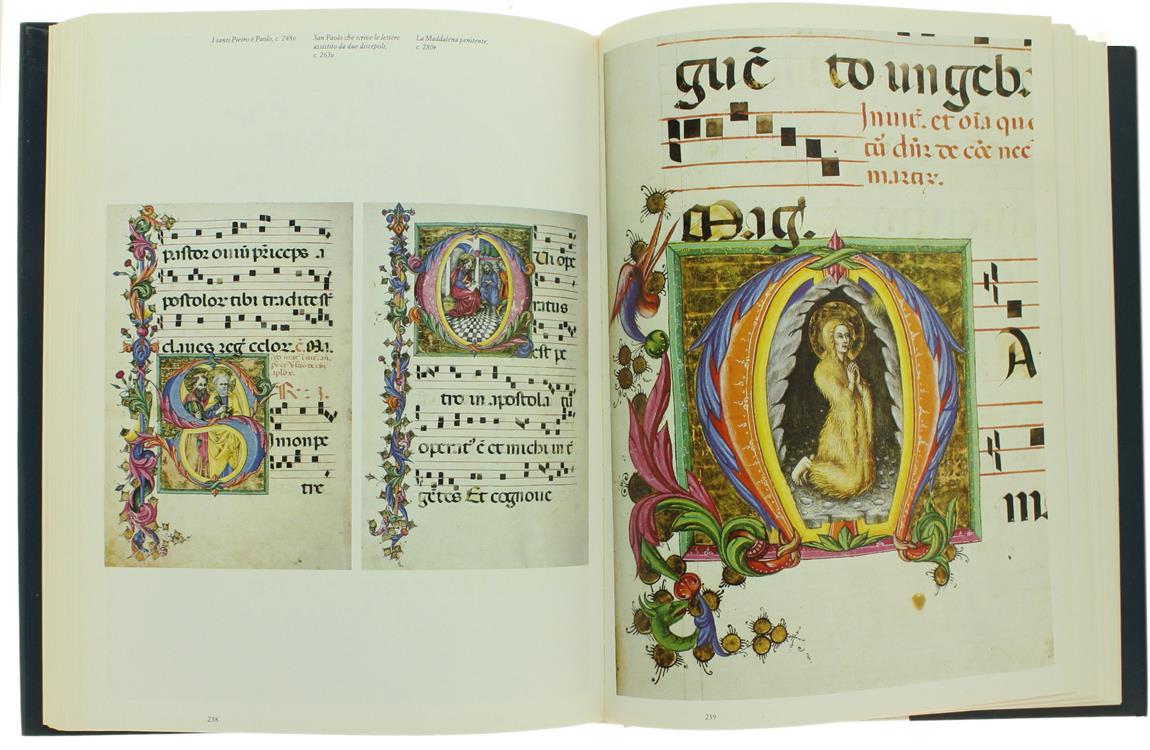 I santi Pietro e Paolo, c. 248v
San Paolo che scrive le lettere
assistito da due discepoli,
c. 263v
La Maddalena penitente,
c. 280v
pastor oviū pr̄iceps a
postolor tibi tradite sūt
claves reg̃ celor. c̄. Ma.
R. j.
imon pe
tre
Ui ope
ratus
est pe
tro in apostola tū
operat' ē et michi in t
gētes Et cognove
238
guē to ungeb.
Invit. et oīa que
tū dn̄r de cōe nec
martir.
Mag.
A
239